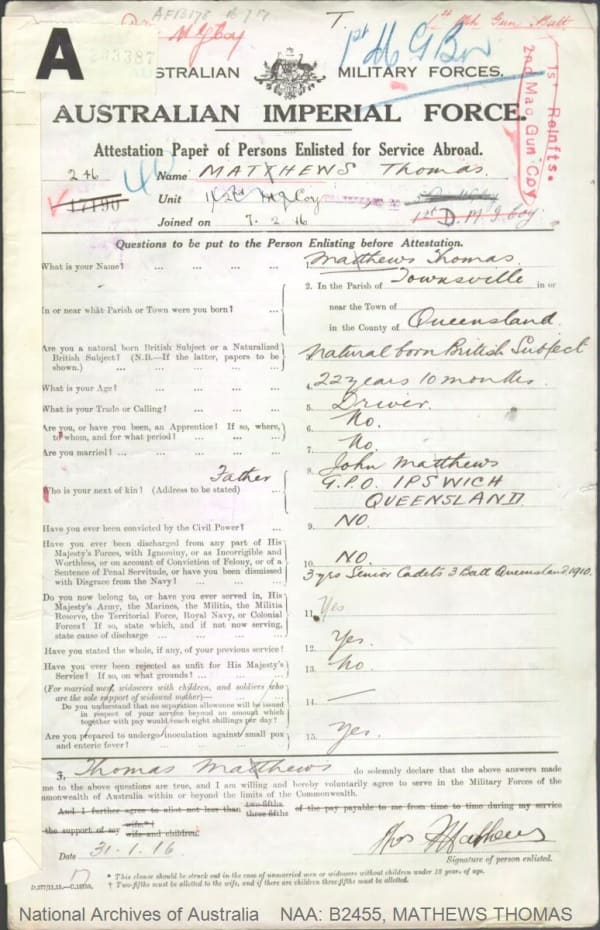 AFB178
T.
A
83387
1st M G Bn
AUSTRALIAN MILITARY FORCES.
AUSTRALIAN IMPERIAL FORCE.
1st Reinfts.
2nd Mac Gun Coy
Attestation Paper of Persons Enlisted for Service Abroad.
246 Name MATTHEWS Thomas.
17190 Unit
1st D. M G Coy
Joined on 7. 2. 16
Questions to be put to the Person Enlisting before Attestation.
What is your Name? ... ... ... ... 1. Matthews Thomas.
In or near what Parish or Town were you born? ... 2. In the Parish of Townsville in or
near the Town of
in the County of Queensland.
Are you a natural born British Subject or a Naturalized
British Subject? (N.B.—If the latter, papers to be
shown.) ... ... ... ... Natural born British Subject
What is your Age? ... ... ... ... 4. 22 years 10 months.
What is your Trade or Calling? ... ... ... 5. Driver.
Are you, or have you been, an Apprentice? If so, where,
to whom, and for what period? ... ... ... 6. No.
Are you married? ... ... ... ... 7. No.
Who is your next of kin? (Address to be stated) ... Father 8. John Matthews
G.P.O. IPSWICH
QUEENSLAND
Have you ever been convicted by the Civil Power? ... 9. NO.
Have you ever been discharged from any part of His
Majesty's Forces, with Ignominy, or as Incorrigible and
Worthless, or on account of Conviction of Felony, or of a
Sentence of Penal Servitude, or have you been dismissed
with Disgrace from the Navy? ... ... ... 10. NO.
3 yrs Senior Cadets 3 Batt Queensland. 1910.
Do you now belong to, or have you ever served in, His
Majesty's Army, the Marines, the Militia, the Militia
Reserve, the Territorial Force, Royal Navy, or Colonial
Forces? If so, state which, and if not now serving,
state cause of discharge ... ... ... ... 11. Yes
Have you stated the whole, if any, of your previous service? 12. Yes.
Have you ever been rejected as unfit for His Majesty's
Service? If so, on what grounds? ... ... ... 13. No.
(For married men, widowers with children, and soldiers who
are the sole support of widowed mother)—
Do you understand that no separation allowance will be issued
in respect of your service beyond an amount which
together with pay would reach eight shillings per day? 14. —
Are you prepared to undergo inoculation against small pox
and enteric fever? ... ... ... ... 15. Yes.
I, Thomas Matthews do solemnly declare that the above answers made
me to the above questions are true, and I am willing and hereby voluntarily agree to serve in the Military Forces of the
Commonwealth of Australia within or beyond the limits of the Commonwealth.
And I further agree to allot not less than two-fifths three-fifths of the pay payable to me from time to time during my service
the support of my wife.* wife and children.
Date 31.1.16 Thos Mathews
Signature of person enlisted.
* This clause should be struck out in the case of unmarried men or widowers without children under 18 years of age.
† Two-fifths must be allotted to the wife, and if there are children three-fifths must be allotted.
National Archives of Australia NAA: B2455, MATHEWS THOMAS